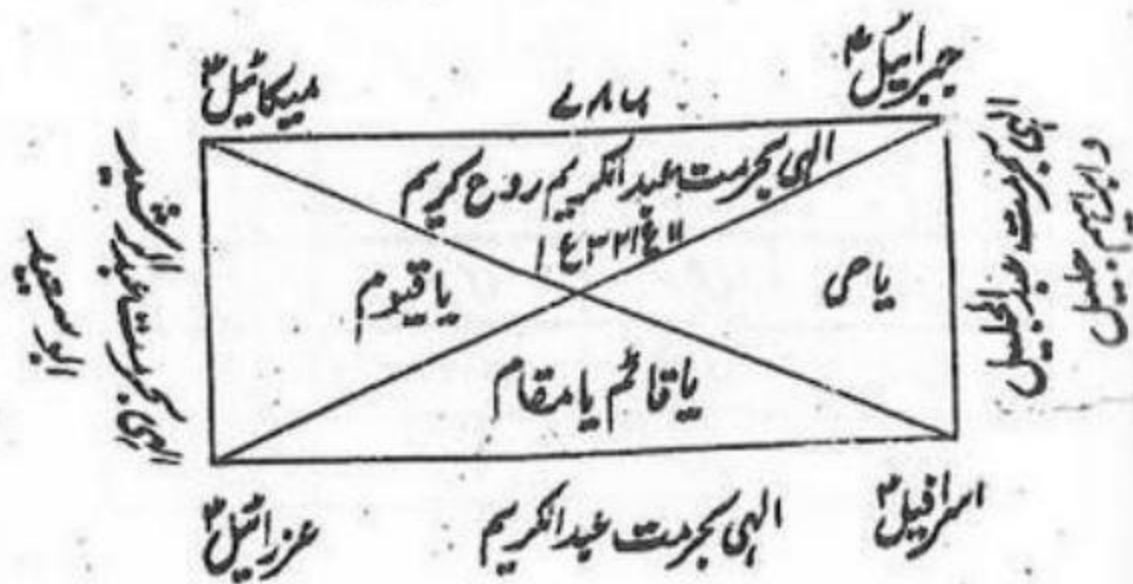 جبرائیل؊
۷۸۶
میکائیل؊
الہی بحرمت عبدالکریم روح کریم
۱۱ع۳۲۱ع۱
یا حی
یا قیوم
یا قائم یا مقام
الہی بحرمت عبدالجلیل
و ابراہیم جلیل
الہی بحرمت عبدالرشید
ابو سعید
اسرافیل؊
الہی بحرمت عبدالکریم
عزرائیل؊